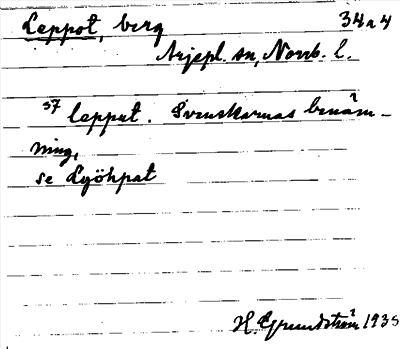 Leppot, berg 34a4
Arjepl. sn, Norrb. l.
57 lepput. Svenskarnas benäm-
ning,
se Lyöhpat
H. Grundström 1935